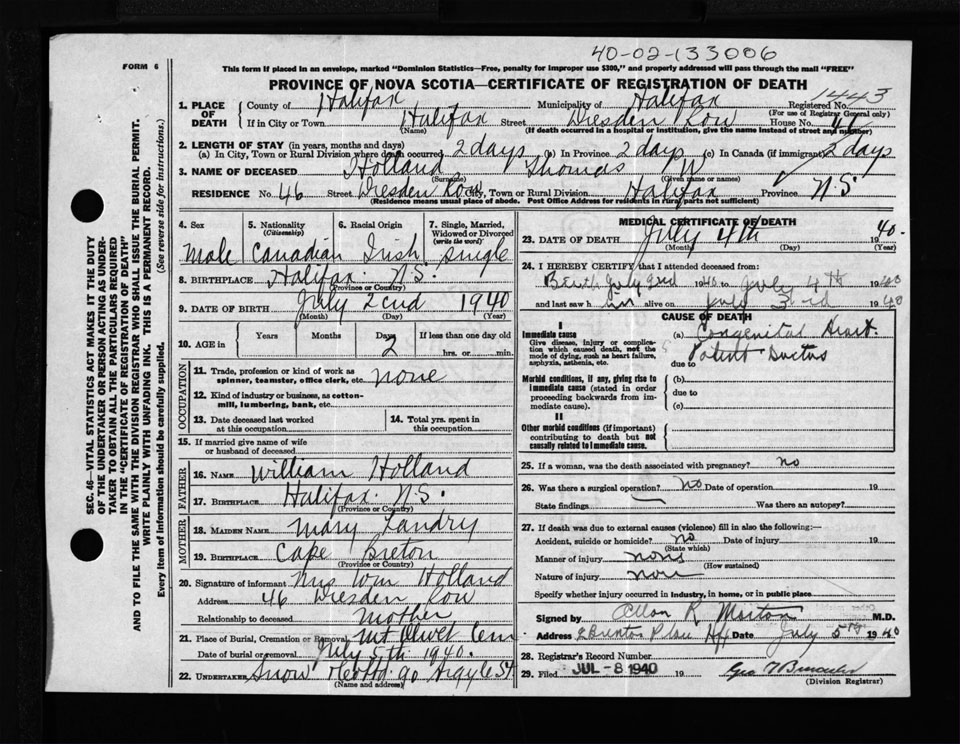 40-02-133006
FORM 6
This form if placed in an envelope, marked "Dominion Statistics—Free, penalty for improper use $300," and properly addressed will pass through the mail "FREE"
PROVINCE OF NOVA SCOTIA—CERTIFICATE OF REGISTRATION OF DEATH
1. PLACE OF DEATH County of Halifax Municipality of Halifax Registered No. 1443
(For use of Registrar General only)
If in City or Town Halifax Street Dresden Row House No. 46
(Name) (If death occurred in a hospital or institution, give the name instead of street and number)
2. LENGTH OF STAY (in years, months and days)
(a) In City, Town or Rural Division where death occurred 2 days (b) In Province 2 days (c) In Canada (if immigrant) 2 days
3. NAME OF DECEASED Holland Thomas W
(Surname) (Given name or names)
RESIDENCE No. 46 Street Dresden Row City, Town or Rural Division Halifax Province N.S
(Residence means usual place of abode. Post Office Address for residents in rural parts not sufficient)
4. Sex 5. Nationality (Citizenship) 6. Racial Origin 7. Single, Married, Widowed or Divorced (write the word)
Male Canadian Irish Single
8. BIRTHPLACE Halifax N.S.
(Province or Country)
9. DATE OF BIRTH July 2cnd 1940
(Month) (Day) (Year)
10. AGE in Years Months Days 2 If less than one day old
hrs. or min.
OCCUPATION
11. Trade, profession or kind of work as spinner, teamster, office clerk, etc. none
12. Kind of industry or business, as cotton-mill, lumbering, bank, etc.
13. Date deceased last worked at this occupation 14. Total yrs. spent in this occupation
15. If married give name of wife or husband of deceased
FATHER
16. NAME William Holland
17. BIRTHPLACE Halifax N.S.
(Province or Country)
MOTHER
18. MAIDEN NAME Mary Landry
19. BIRTHPLACE Cape Breton
(Province or Country)
20. Signature of informant Mrs Wm Holland
Address 46 Dresden Row
Relationship to deceased Mother
21. Place of Burial, Cremation or Removal Mt Olivet Cem
Date of burial or removal July 5th 1940.
22. UNDERTAKER Snow & Co Ltd 90 Argyle St
(Name and address)
MEDICAL CERTIFICATE OF DEATH
23. DATE OF DEATH July 4th 1940.
(Month) (Day) (Year)
24. I HEREBY CERTIFY that I attended deceased from:
Birth July 2nd 1940 to July 4th 1940
and last saw h im alive on July 3rd 1940
CAUSE OF DEATH
I
Immediate cause (a) Congenital Heart.
Give disease, injury or complication which caused death, not the mode of dying, such as heart failure, asphyxia, asthenia, etc.
Patent Ductus
due to
Morbid conditions, if any, giving rise to immediate cause (stated in order proceeding backwards from immediate cause). (b)
due to
(c)
II
Other morbid conditions (if important) contributing to death but not causally related to immediate cause.
25. If a woman, was the death associated with pregnancy? no
26. Was there a surgical operation? no Date of operation 19
State findings Was there an autopsy?
27. If death was due to external causes (violence) fill in also the following:—
Accident, suicide or homicide? no Date of injury 19
(State which)
Manner of injury none
(How sustained)
Nature of injury none
Specify whether injury occurred in industry, in home, or in public place
Signed by Allan R Morton M.D.
Address 2 Brenton Place Hfx Date July 5th 1940
28. Registrar's Record Number
29. Filed JUL -8 1940 19
(Division Registrar)
SEC. 46—VITAL STATISTICS ACT MAKES IT THE DUTY
OF THE UNDERTAKER OR PERSON ACTING AS UNDER-
TAKER TO OBTAIN ALL THE PARTICULARS REQUIRED
IN THE "CERTIFICATE OF REGISTRATION OF DEATH"
AND TO FILE THE SAME WITH THE DIVISION REGISTRAR WHO SHALL ISSUE THE BURIAL PERMIT.
WRITE PLAINLY WITH UNFADING INK. THIS IS A PERMANENT RECORD.
Every item of information should be carefully supplied. (See reverse side for instructions.)